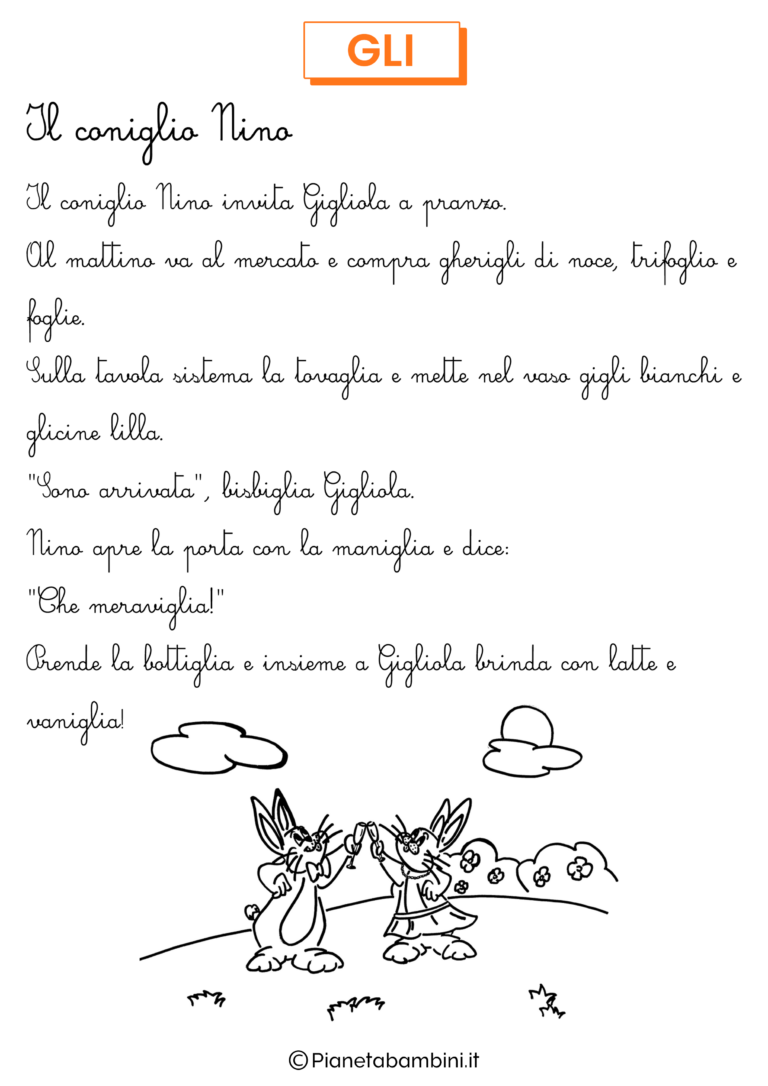 GLI
Il coniglio Nino
Il coniglio Nino invita Gigliola a pranzo.
Al mattino va al mercato e compra gherigli di noce, trifoglio e
foglie.
Sulla tavola sistema la tovaglia e mette nel vaso gigli bianchi e
glicine lilla.
"Sono arrivata", bisbiglia Gigliola.
Nino apre la porta con la maniglia e dice:
"Che meraviglia!"
Prende la bottiglia e insieme a Gigliola brinda con latte e
vaniglia!
©Pianetabambini.it